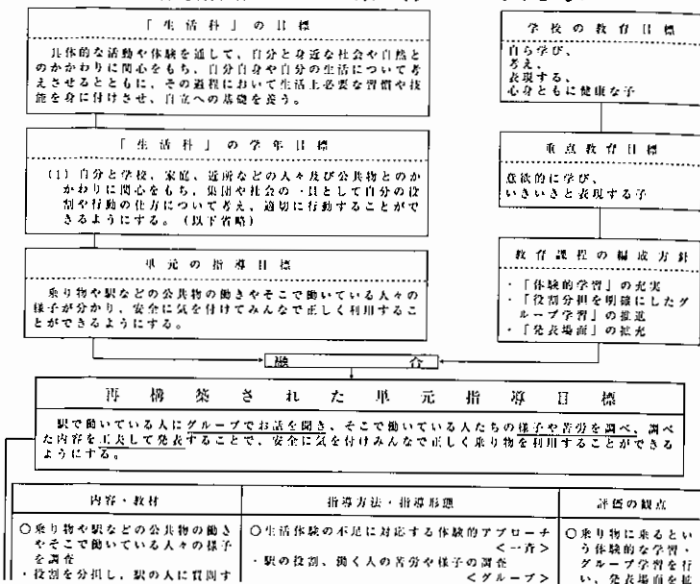 「生活科」の目標
具体的な活動や体験を通して、自分と身近な社会や自然と
のかかわりに関心をもち、自分自身や自分の生活について考
えさせるとともに、その過程において生活上必要な習慣や技
能を身に付けさせ、自立への基礎を養う。
「生活科」の学年目標
(1) 自分と学校、家庭、近所などの人々及び公共物とのか
かわりに関心をもち、集団や社会の一員として自分の役
割や行動の仕方について考え、適切に行動することがで
きるようにする。(以下省略)
単元の指導目標
乗り物や駅などの公共物の働きやそこで働いている人々の
様子が分かり、安全に気を付けてみんなで正しく利用するこ
とができるようにする。
学校の教育目標
自ら学び、
考え、
表現する、
心身ともに健康な子
重点教育目標
意欲的に学び、
いきいきと表現する子
教育課程の編成方針
・「体験的学習」の充実
・「役割分担を明確にしたグ
ループ学習」の推進
・「発表場面」の拡充
融合
再構築された単元指導目標
駅で働いている人にグループでお話を聞き、そこで働いている人たちの様子や苦労を調べ、調べ
た内容を工夫して発表することで、安全に気を付けみんなで正しく乗り物を利用することができる
ようにする。
内容・教材
○乗り物や駅などの公共物の働き
やそこで働いている人々の様子
を調査
・役割を分担し、駅の人に質問す
指導方法・指導形態
○生活体験の不足に対応する体験的アプローチ
<一斉>
・駅の役割、働く人の苦労や様子の調査
<グループ>
評価の観点
○乗り物に乗るとい
う体験的な学習・
グループ学習を行
い、発表場面を